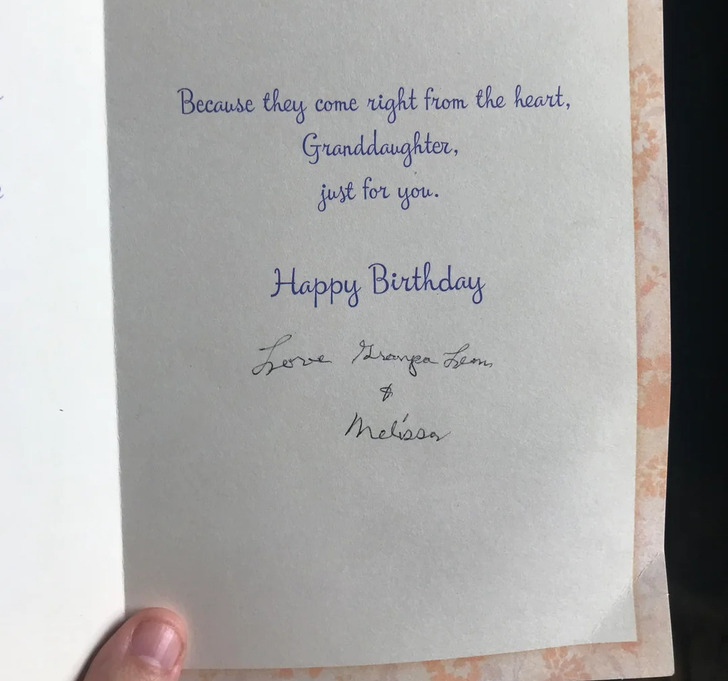 Because they come right from the heart,
Granddaughter,
just for you.
Happy Birthday
Love Grampa Leon
&
Melissa